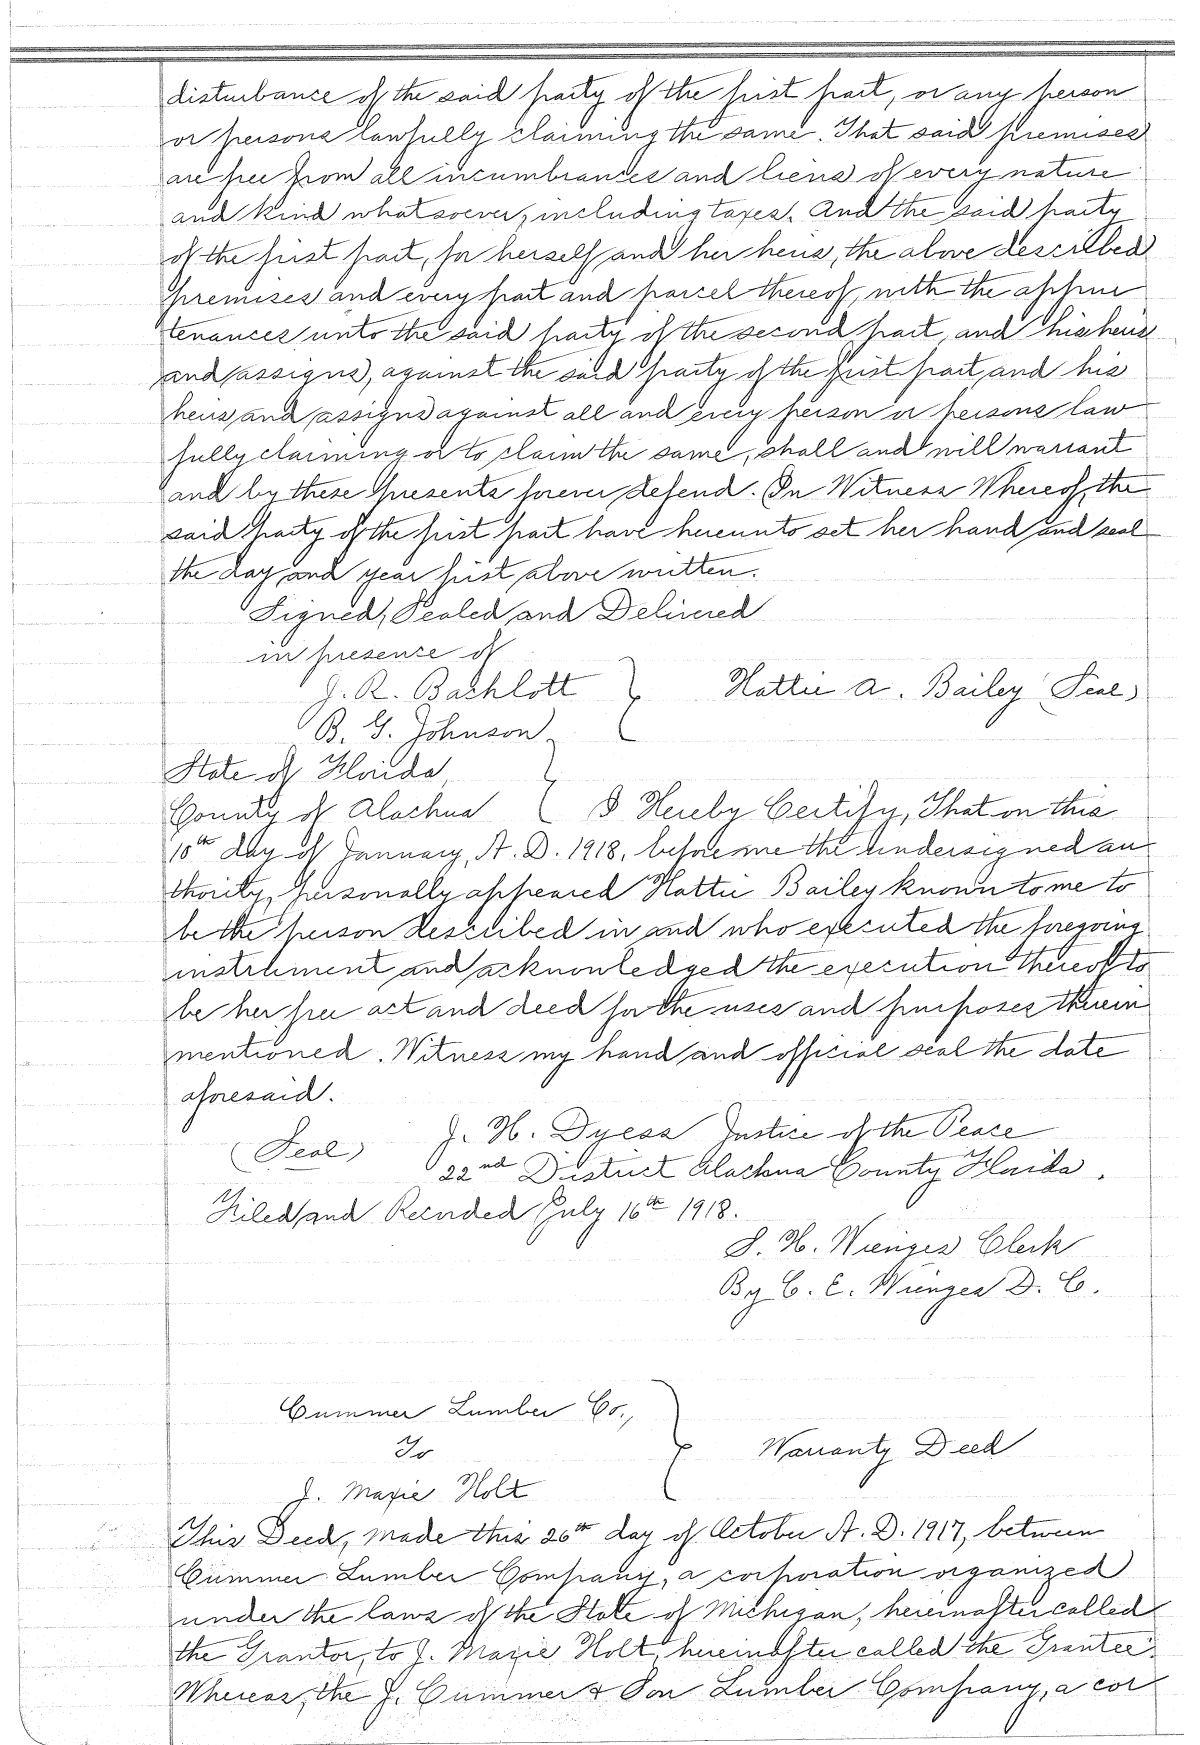 disturbance of the said party of the first part, or any person
or persons lawfully claiming the same. That said premises
are free from all incumbrances and liens of every nature
and kind whatsoever, including taxes. And the said party
of the first part, for herself and her heirs, the above described
premises and every part and parcel thereof, with the appur
tenances unto the said party of the second part, and his heirs
and assigns, against the said party of the first part and his
heirs and assigns against all and every person or persons law
fully claiming or to claim the same, shall and will warrant
and by these presents forever defend. In Witness Whereof, the
said party of the first part have hereunto set her hand and seal
the day and year first above written.
Signed, Sealed and Delivered
in presence of
J. R. Bachlott } Hattie A. Bailey (Seal)
B. G. Johnson
State of Florida
County of Alachua } I Hereby Certify, That on this
10th day of January, A. D. 1918, before me the undersigned au
thority, personally appeared Hattie Bailey known to me to
be the person described in and who executed the foregoing
instrument and acknowledged the execution thereof to
be her free act and deed for the uses and purposes therein
mentioned. Witness my hand and official seal the date
aforesaid.
(Seal) J. H. Dyess Justice of the Peace
22nd District Alachua County Florida.
Filed and Recorded July 16th 1918.
S. H. Wienges Clerk
By C. E. Wienges D. C.
Cummer Lumber Co.,
To } Warranty Deed
J. Maxie Holt
This Deed, made this 26th day of October A. D. 1917, between
Cummer Lumber Company, a corporation organized
under the laws of the State of Michigan, hereinafter called
the Grantor, to J. Maxie Holt, hereinafter called the Grantee.
Whereas, the J. Cummer & Son Lumber Company, a cor